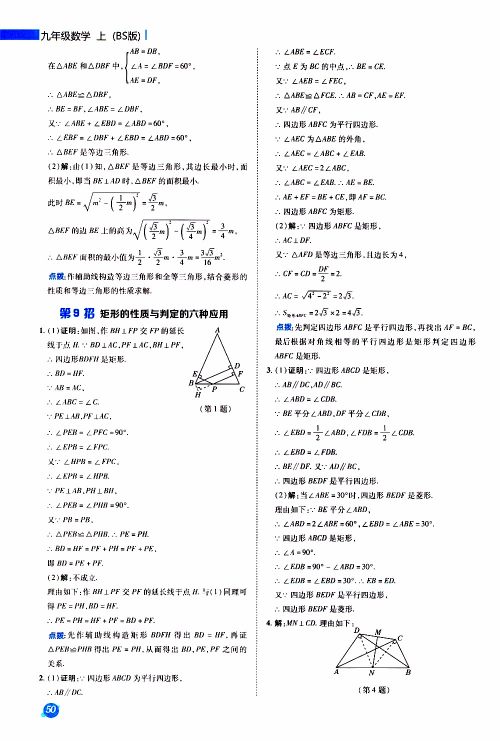 九年级数学 上 (BS版)
AB = DB,
在△ABE 和△DBF 中, ∠A = ∠BDF = 60°,
AE = DF,
∴ △ABE≌△DBF,
∴ BE = BF, ∠ABE = ∠DBF,
又∵ ∠ABE + ∠EBD = ∠ABD = 60°,
∴ ∠EBF = ∠DBF + ∠EBD = ∠ABD = 60°,
∴ △BEF 是等边三角形.
(2)解:由(1)知,△BEF 是等边三角形,其边长最小时,面
积最小,即当 BE⊥AD 时,△BEF 的面积最小.
此时 BE = √(m² - (1/2 m)²) = √3/2 m,
△BEF 的边 BE 上的高为 √((√3/2 m)² - (√3/4 m)²) = 3/4 m,
∴ △BEF 面积的最小值为 1/2 · √3/2 m · 3/4 m = 3√3/16 m².
点拨:作辅助线构造等边三角形和全等三角形,结合菱形的
性质和等边三角形的性质求解.
第 9 招 矩形的性质与判定的六种应用
1. (1)证明:如图,作 BH⊥FP 交 FP 的延长
线于点 H. ∵ BD⊥AC, PF⊥AC, BH⊥PF,
∴ 四边形BDFH 是矩形.
∴ BD = HF.
∵ AB = AC,
∴ ∠ABC = ∠C.
∵ PE⊥AB, PF⊥AC,
∴ ∠PEB = ∠PFC = 90°.
∴ ∠EPB = ∠FPC.
又∵ ∠HPB = ∠FPC,
∴ ∠EPB = ∠HPB.
∵ PE⊥AB, PH⊥BH,
∴ ∠PEB = ∠PHB = 90°.
又∵ PB = PB,
∴ △PEB≌△PHB. ∴ PE = PH.
∴ BD = HF = PF + PH = PF + PE,
即 BD = PE + PF.
(2)解:不成立.
理由如下:作 BH⊥PF 交 PF 的延长线于点 H. 与(1)同理可
得 PE = PH, BD = HF.
∴ PE = PH = HF + PF = BD + PF.
点拨:先作辅助线构造矩形 BDFH 得出 BD = HF, 再证
△PEB≌PHB 得出 PE = PH, 从而得出 BD, PE, PF 之间的
关系.
2. (1)证明:∵ 四边形 ABCD 为平行四边形,
∴ AB∥DC.
A
E
D
F
B
P
C
H
(第 1 题)
∴ ∠ABE = ∠ECF.
∵ 点 E 为 BC 的中点, ∴ BE = CE.
又∵ ∠AEB = ∠FEC,
∴ △ABE≌△FCE. ∴ AB = CF, AE = EF.
又∵ AB∥CF,
∴ 四边形 ABFC 为平行四边形.
∵ ∠AEC 为△ABE 的外角,
∴ ∠AEC = ∠ABC + ∠EAB.
又∵ ∠AEC = 2∠ABC,
∴ ∠ABC = ∠EAB. ∴ AE = BE.
∴ AE + EF = BE + CE, 即 AF = BC.
∴ 四边形 ABFC 为矩形.
(2)解:∵ 四边形 ABFC 是矩形,
∴ AC⊥DF.
又∵ △AFD 是等边三角形,且边长为 4,
∴ CF = CD = DF/2 = 2.
∴ AC = √(4² - 2²) = 2√3.
∴ S四边形ABFC = 2√3 × 2 = 4√3.
点拨:先判定四边形 ABFC 是平行四边形,再找出 AF = BC,
最后根据对角线相等的平行四边形是矩形判定四边形
ABFC 是矩形.
3. (1)证明:∵ 四边形 ABCD 是矩形,
∴ AB∥DC, AD∥BC.
∴ ∠ABD = ∠CDB.
∵ BE 平分∠ABD, DF 平分∠CDB,
∴ ∠EBD = 1/2 ∠ABD, ∠FDB = 1/2 ∠CDB.
∴ ∠EBD = ∠FDB.
∴ BE∥DF. 又∵ AD∥BC,
∴ 四边形 BEDF 是平行四边形.
(2)解:当∠ABE = 30°时,四边形 BEDF 是菱形.
理由如下:∵ BE 平分∠ABD,
∴ ∠ABD = 2∠ABE = 60°, ∠EBD = ∠ABE = 30°.
∵ 四边形 ABCD 是矩形,
∴ ∠A = 90°.
∴ ∠EDB = 90° - ∠ABD = 30°.
∴ ∠EDB = ∠EBD = 30°. ∴ EB = ED.
又∵ 四边形 BEDF 是平行四边形,
∴ 四边形 BEDF 是菱形.
4. 解:MN⊥CD. 理由如下:
D
M
C
A
N
B
(第 4 题)
50